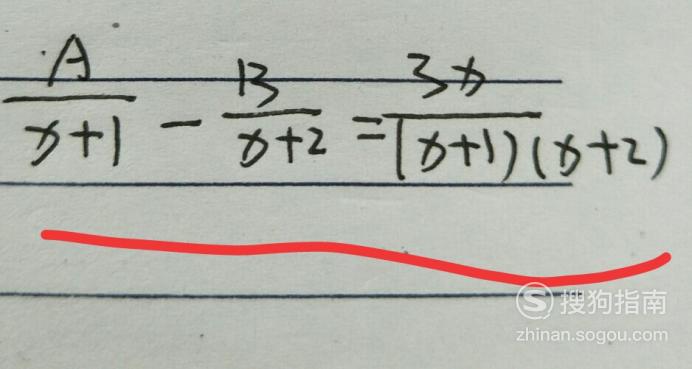 A/(x+1) - B/(x+2) = 3x/((x+1)(x+2))
S 搜狗指南
zhinan.sogou.com